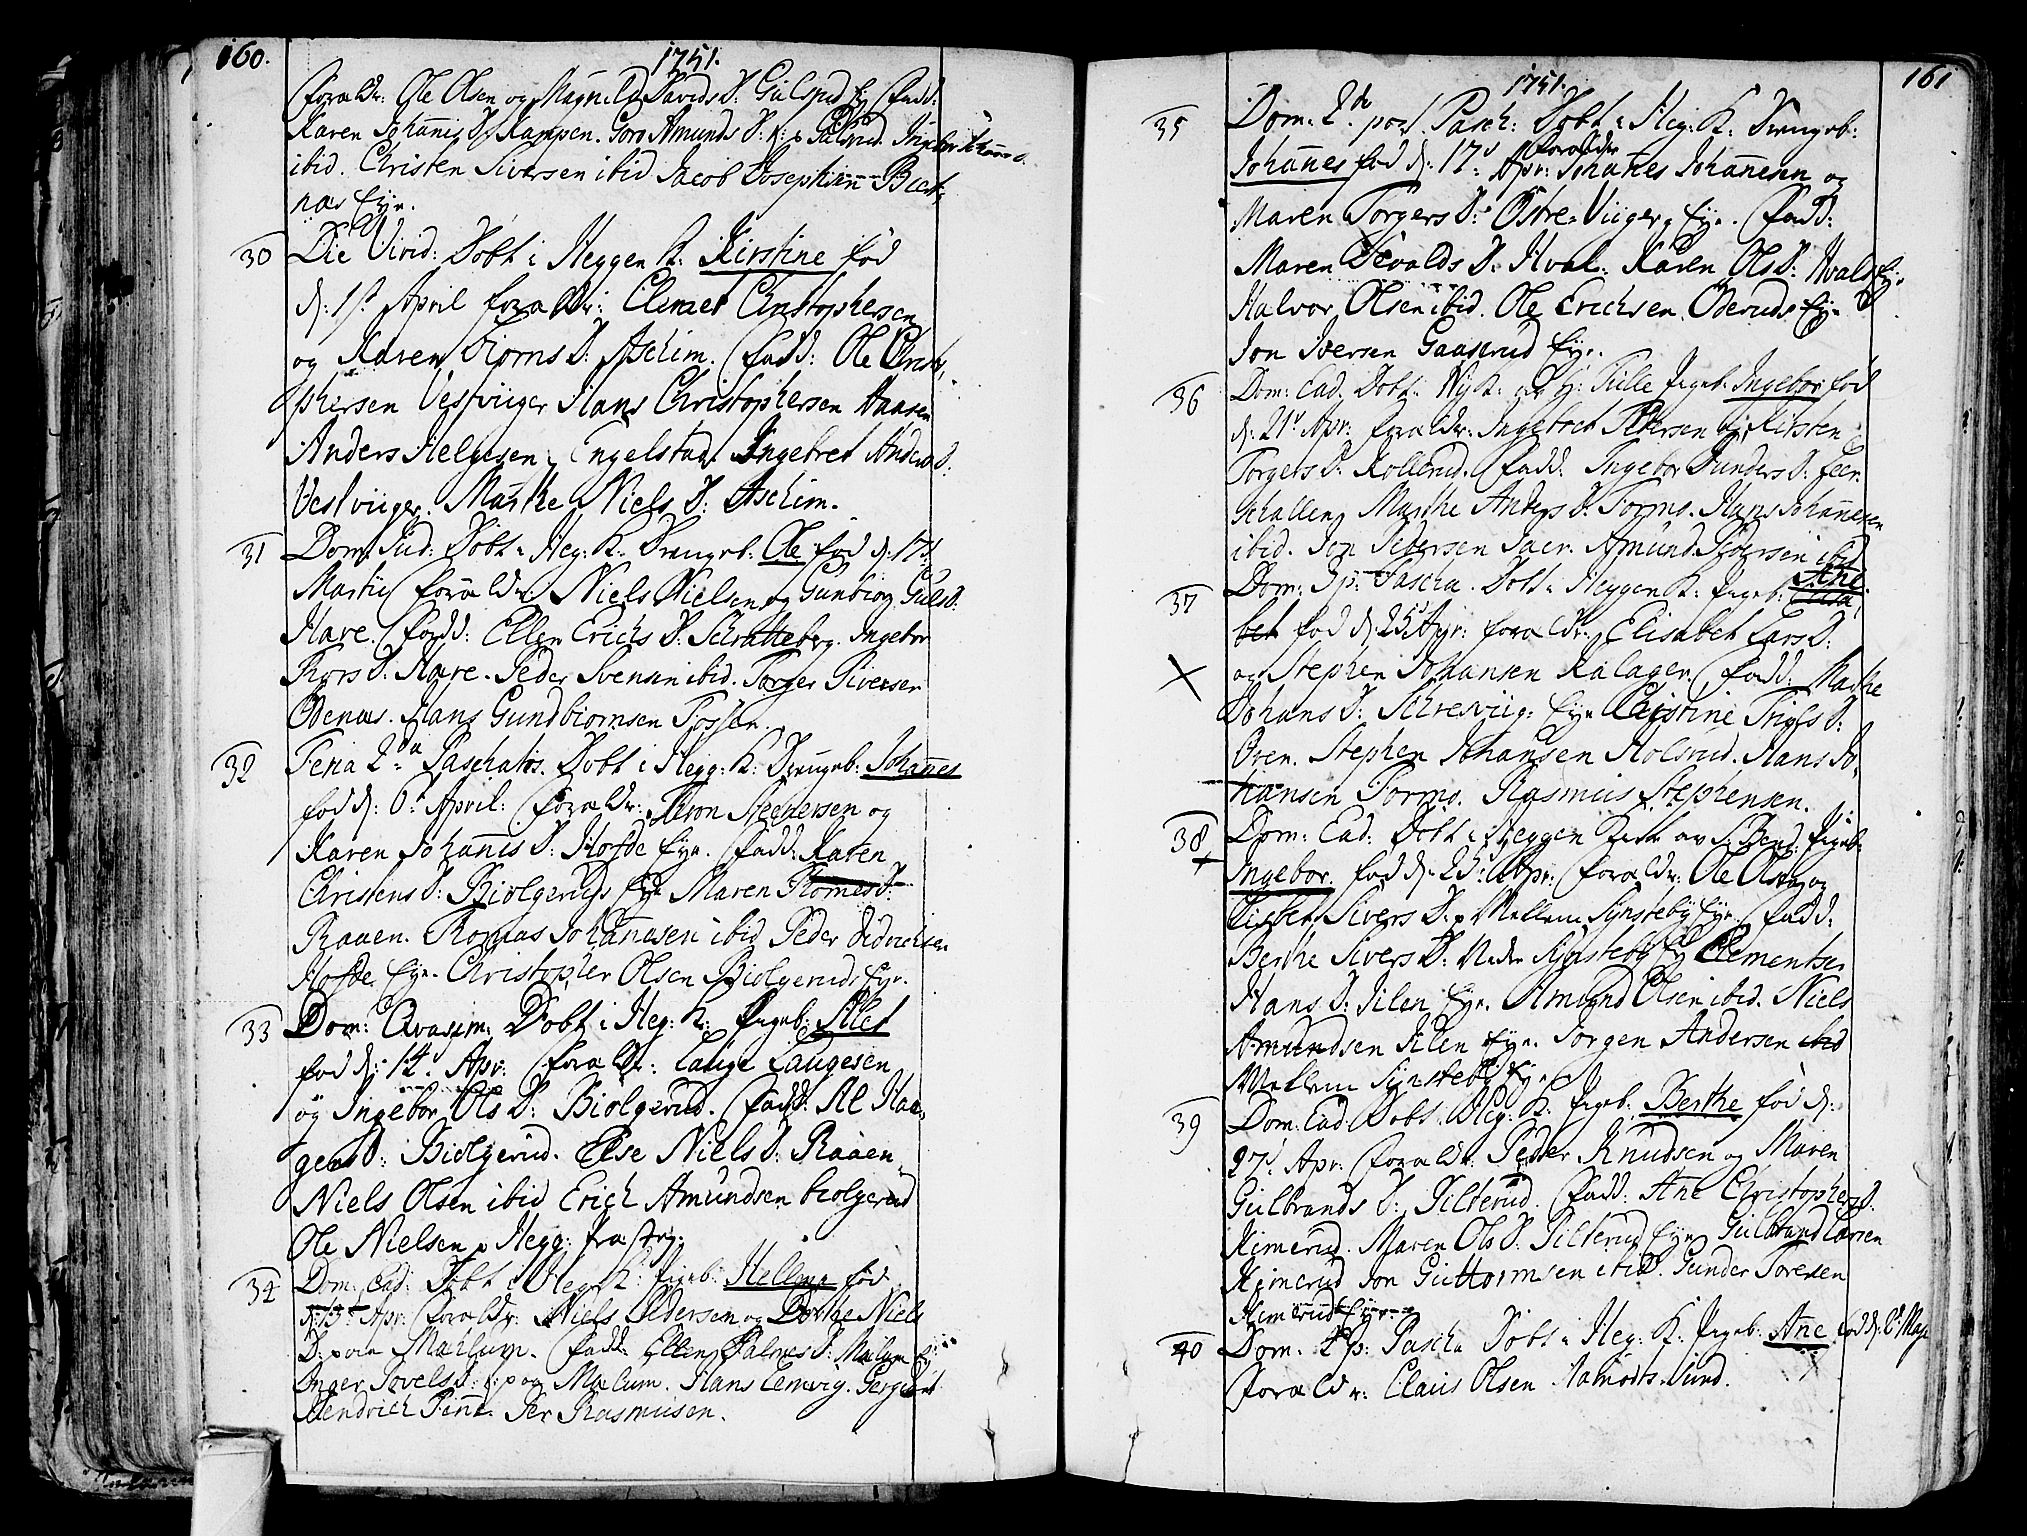 160.
1751.
Forældr: Ole Olsen og Magnild Davids D: Gulsrud Ey. Fadd:
Karen Johanis D. Kampen. Goro Amunds D: Gulsrud. Ingebor
ibid. Christen Siversen ibid Jacob Josephsen Biert
næs Eye.
30 Die Virid: Döbt i Heggen K. Kirstine fød
d: 1st April forældr: Clemet Christophersen
og Karen Siorns D. Aschim. Fadd: Ole Christo,
phersen Vestviiger Hans Christophersen Haasen
Anders Helgesen Engelstad Ingebret Anders D:
Vestviiger. Marthe Niels D: Aschim.
31 Dom: Jud: Döbt i Heg: K. Drengeb: Ole fød d: 17d
Martii Forældr: Niels Nielsen og Gunbior Guls D:
Hare. Fadd: Ellen Erichs D: Schratteberg. Ingebor
Thors D. Hare. Peder Svensen ibid. Torger Siversen
Odenæs. Hans Gundbiornsen Tossen.
32 Feria 2da Paschatos. Döbt i Hegg: K: Drengeb: Johannes
fød d: 6d April: Forældr: Thron Steenersen og
Karen Johannis D: Hofde Eye. Fadd: Karen
Christens D: Biolgeruds Eye Maren Thomes D:
Raaen. Thomas Johannesen ibid Peder Didrichsen
Hofde Eye. Christopher Olsen Biolgeruds Eye.
33 Dom: Qvasim: Döbt i Heg: K: Pigeb: Allet
fød d: 14d Apr: Forældr: Lauge Laugesen
og Ingebor Ols D: Biolgerud. Fadd: Al Haa-
gens D: Biolgerud. Else Niels D: Raaen
Niels Olsen ibid Erich Amundsen biolgerud
Ole Nielsen Hegg: Præstg:
34 Dom: Ead: Döbt i Heg: K: Pigeb: Hellene fød
d: 13d Apr: Forældr: Niels Pedersen og Dorthe Niels
D: paa Mælum. Fadd: Ellen Palmes D: Mælum
Inger Jovels D: paa Mælum. Hans Lemvig.
Hendrich Pinne. Per Rasmusen.
161
1751.
35 Dom: 2de post Pasch: Döbt i Heg: K: Drengeb:
Johannes fød d: 17d Apr: forældr Johannes Johannesen og
Maren Torgers D: Östre Viiger Eye. Fadd:
Maren Sevalds D: Hval. Karen Ols D: Hvals Eye
Halvor Olsen ibid. Ole Erichsen Oderuds Eye
Jon Iversen Gaaserud Eye.
36 Dom: Ead: Döbt i Ny K: Pigeb: Ingebor fød
d: 21d Apr: forældr: Ingebret Pedersen og Kirsten
Torgers D: Kollerud. Fadd: Ingebor Gunders D:
Schallen. Marthe Anders D. Tormo. Hans Johannesen
ibid. Jon Pedersen Amund Pedersen ibid
37 Dom: 3 p: Pascha. Döbt i Heggen K: Pigeb: Ane Elisa,
bet fød d: 25d Apr: forældr: Elisabet Lars D:
og Stephen Johansen Kalager. Fadd: Marthe
Johans D: Schresviig: Eye Christine Friges D:
Oren. Stephen Johansen Holsrud. Hans Jo,
hansen Tormo. Rasmus Stephensen.
38 Dom: Ead: Döbt i Heggen Pigeb:
Ingebor. fød d. 25d Apr: Forældr: Ole Olsen og
Lisbet Sivers D. Mellem Synsteby Eye. Fadd:
Berthe Sivers D: Nedre Synsteby Ey Clementser
Hans D: Jilen Eye. Amund Olsen ibid. Niels
Amundsen Jilen Eye. Jorgen Andersen ibid
Mellem Synsteby Eye
39 Dom: Ead: Döbt i Heg: K: Pigeb: Berthe fød d:
27d Apr: Forældr: Peder Knudsen og Maren
Gulbrands D: Silterud. Fadd: Ane Christophers D.
Kimerud. Maren Ols D: Silterud Eye Gulbrand Larsen
Kimerud Jon Guttormsen ibid. Gunder Toresen
Kimerud Eye
40 Dom: p: Pascha Döbt i Heg: K: Pigeb: Ane fød d: 2d Maj
Forældr: Claus Olsen Nannodts Sund.